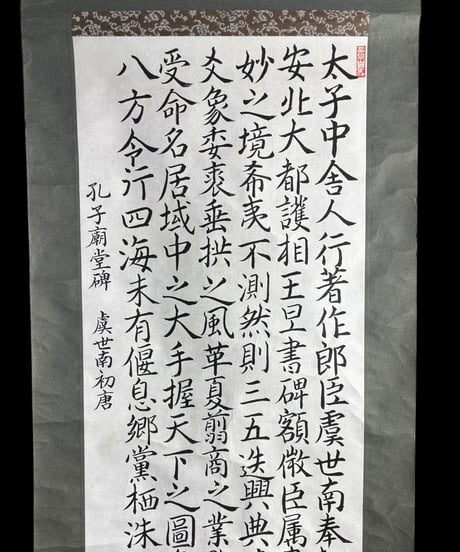 太子中舍人行著作郎臣虞世南奉
安北大都護相王旦書碑額微臣属
妙之境希夷不測然則三五迭興典
爻象委裘垂拱之風革夏翦商之業
受命名居域中之大手握天下之圖
八方令行四海未有偃息鄉黨栖洙
孔子廟堂碑 虞世南初唐